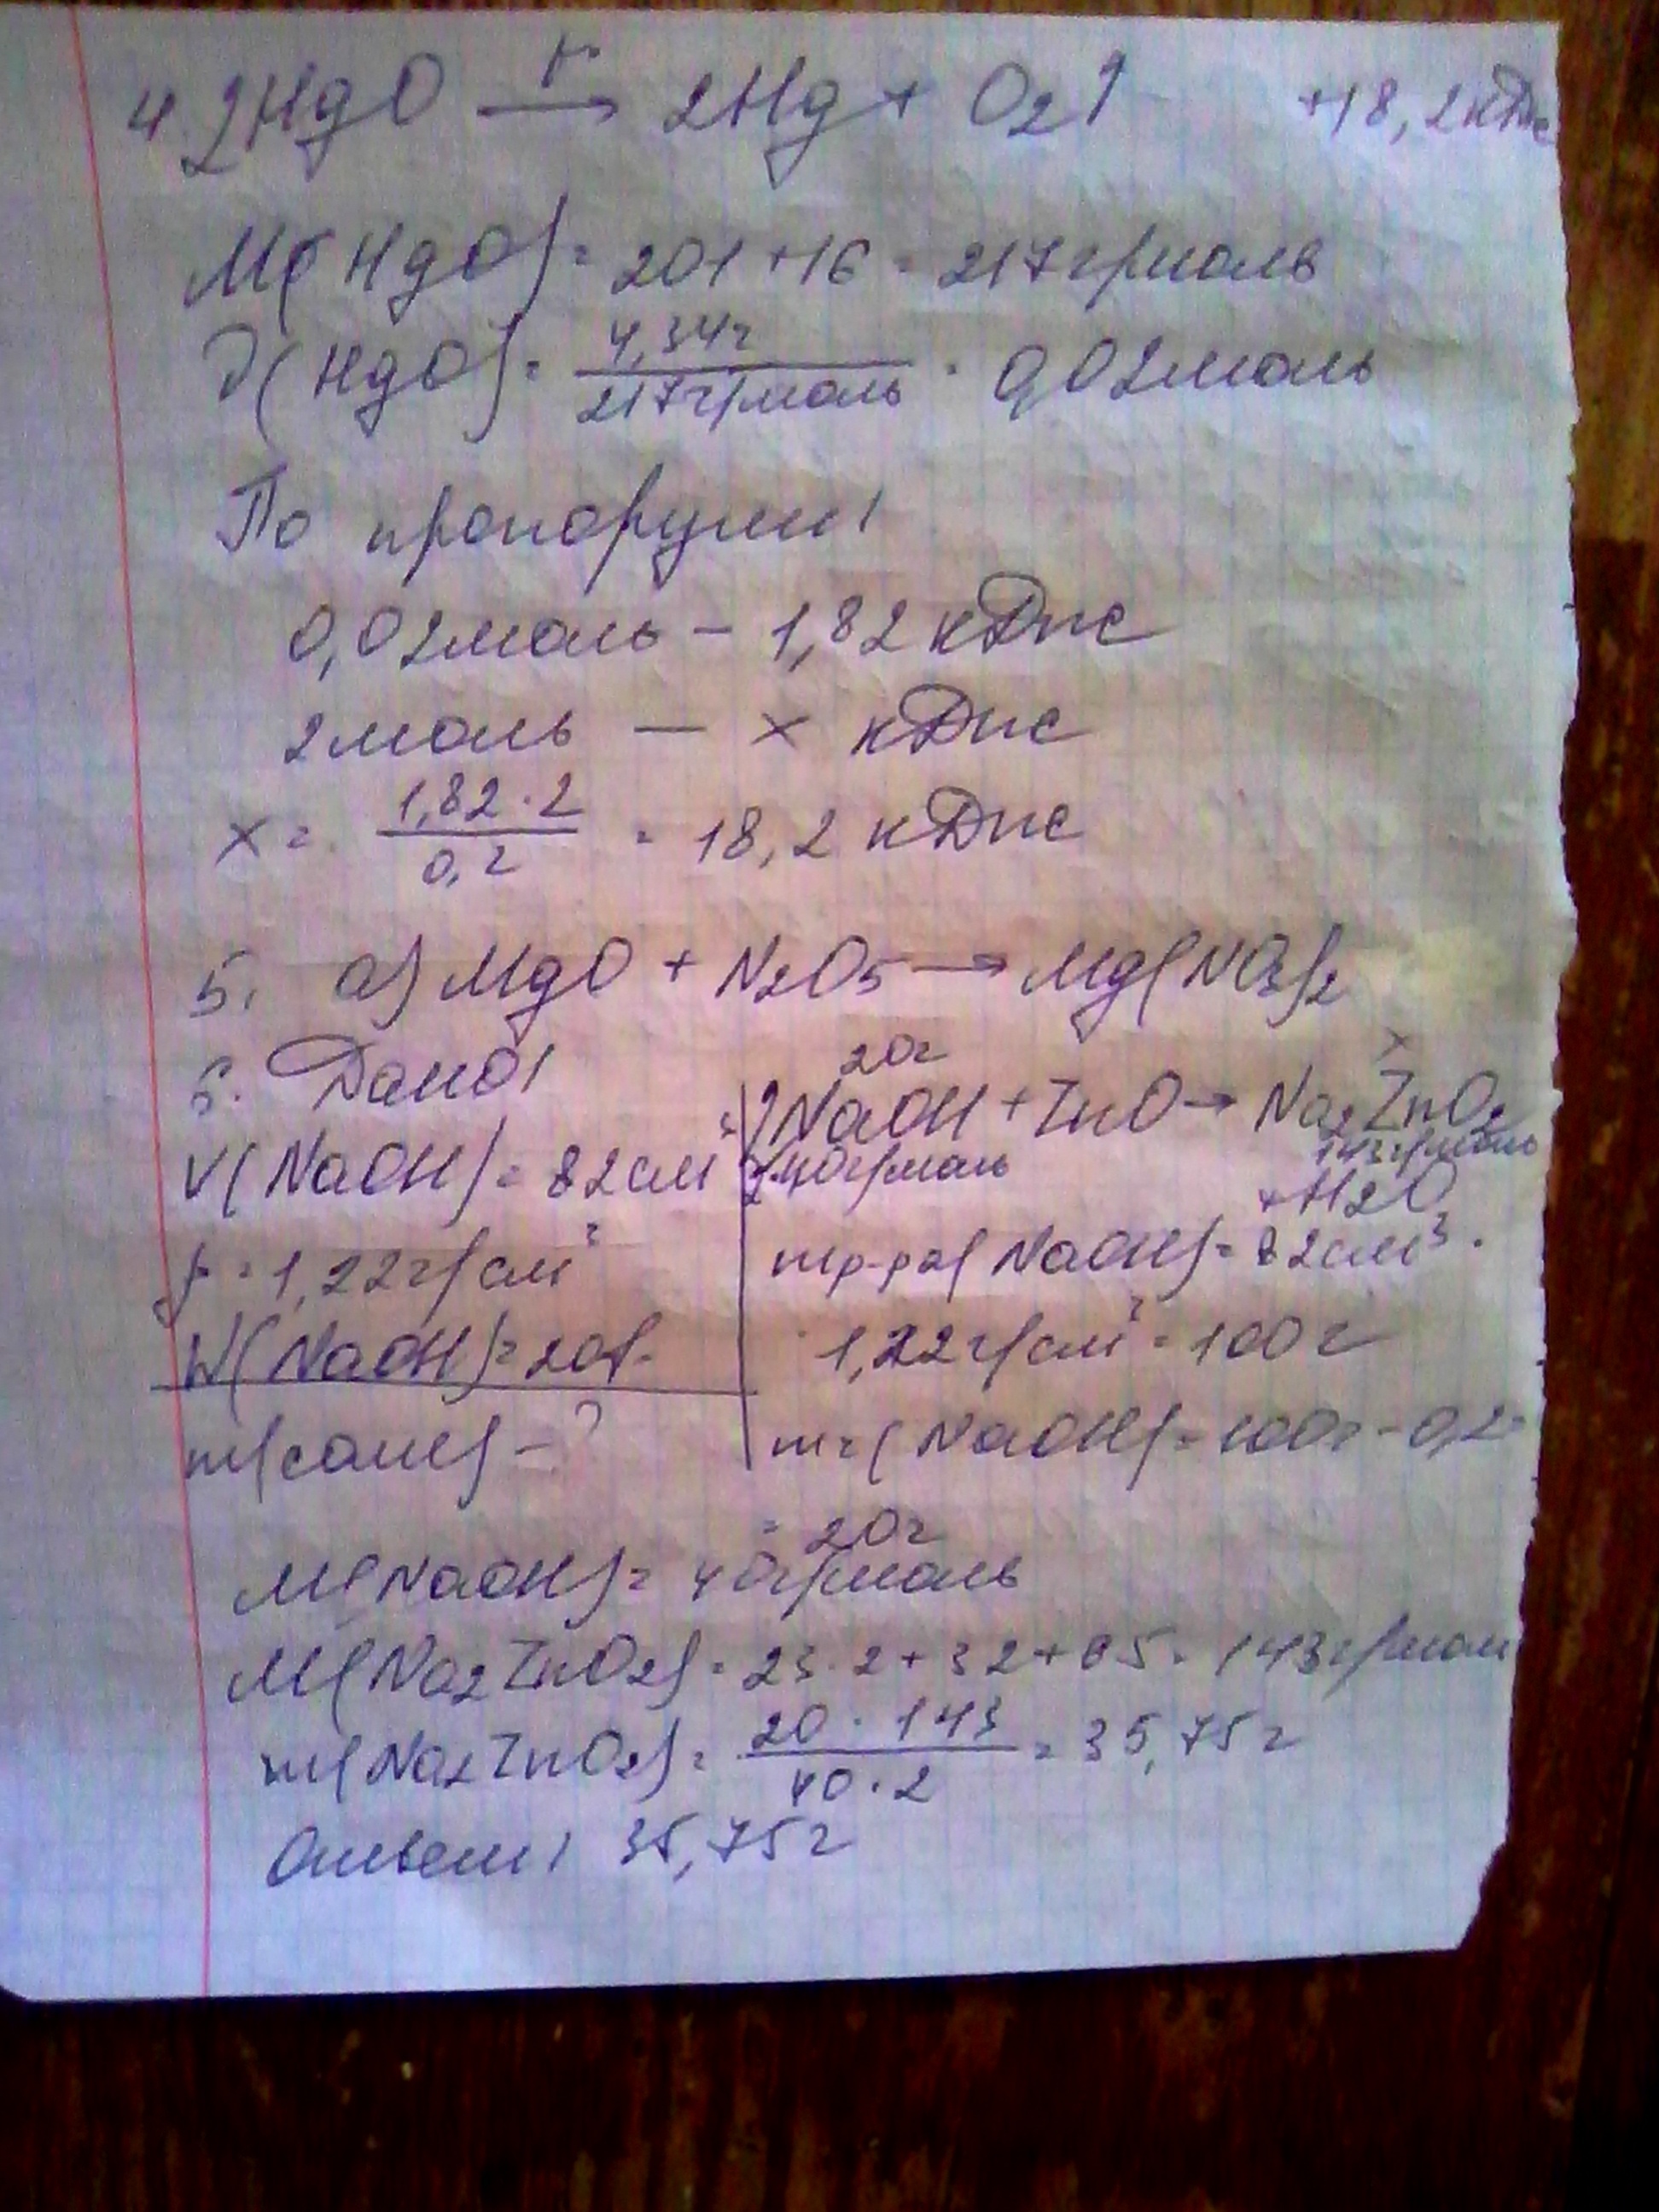 4. 2HgO → 2Hg + O2↑ +18,2кДж
M(HgO) = 201+16 = 217г/моль
ν(HgO) = 4,34г / 217г/моль = 0,02моль
По пропорции:
0,02моль – 1,82 кДж
2моль — x кДж
x = 1,82·2 / 0,2 = 18,2 кДж
5. а) MgO + N2O5 → Mg(NO3)2
6. Дано:
V(NaOH) = 82см³
ρ = 1,22г/см³
W(NaOH) = 20%
m(соли) – ?
20г x
2NaOH + ZnO → Na2ZnO2
2·40г/моль 143г/моль
+H2O
mр-ра(NaOH) = 82см³ ·
· 1,22г/см³ = 100г
(NaOH) = 100г · 0,2
= 20г
M(NaOH) = 40г/моль
M(Na2ZnO2) = 23·2+32+65 = 143г/моль
m(Na2ZnO2) = 20·143 / 40·2 = 35,75г
Ответ: 35,75г